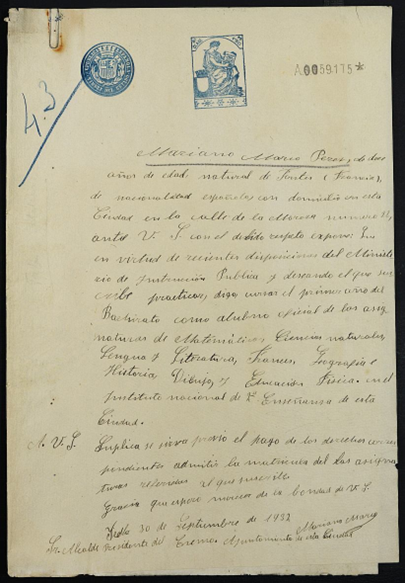 43
A0059175*
Mariano Marco Perez, de doce
años de edad natural de (Francia),
de nacionalidad española con domicilio en esta
Ciudad en la calle de la numero
ante V. S. con el debido respeto expone: Que
en virtud de recientes disposiciones del Ministe
rio de Instrucción Publica y deseando el que sus
cribe practicar, digo cursar el primer año del
Bachirato como alubno oficial de las asig
naturas de Matemáticas Ciencias naturales,
Lengua y Literatura, Frances, Geografia e
Historia Dibujo, y Educacion Fisica. en el
Instituto nacional de 2ª Enseñansa de esta
Ciudad.
A. V. S. Suplica se sirva previo el pago de los derechos corres
pondientes admitir la matricula del las asigna
turas referidas el que suscribe
Gracia que espero merecer de la bondad de V. S.
30 de Septiembre de 1932
Mariano Marco
Sr. Alcalde Presidente del Excmo. Ayuntamiento de esta Ciudad